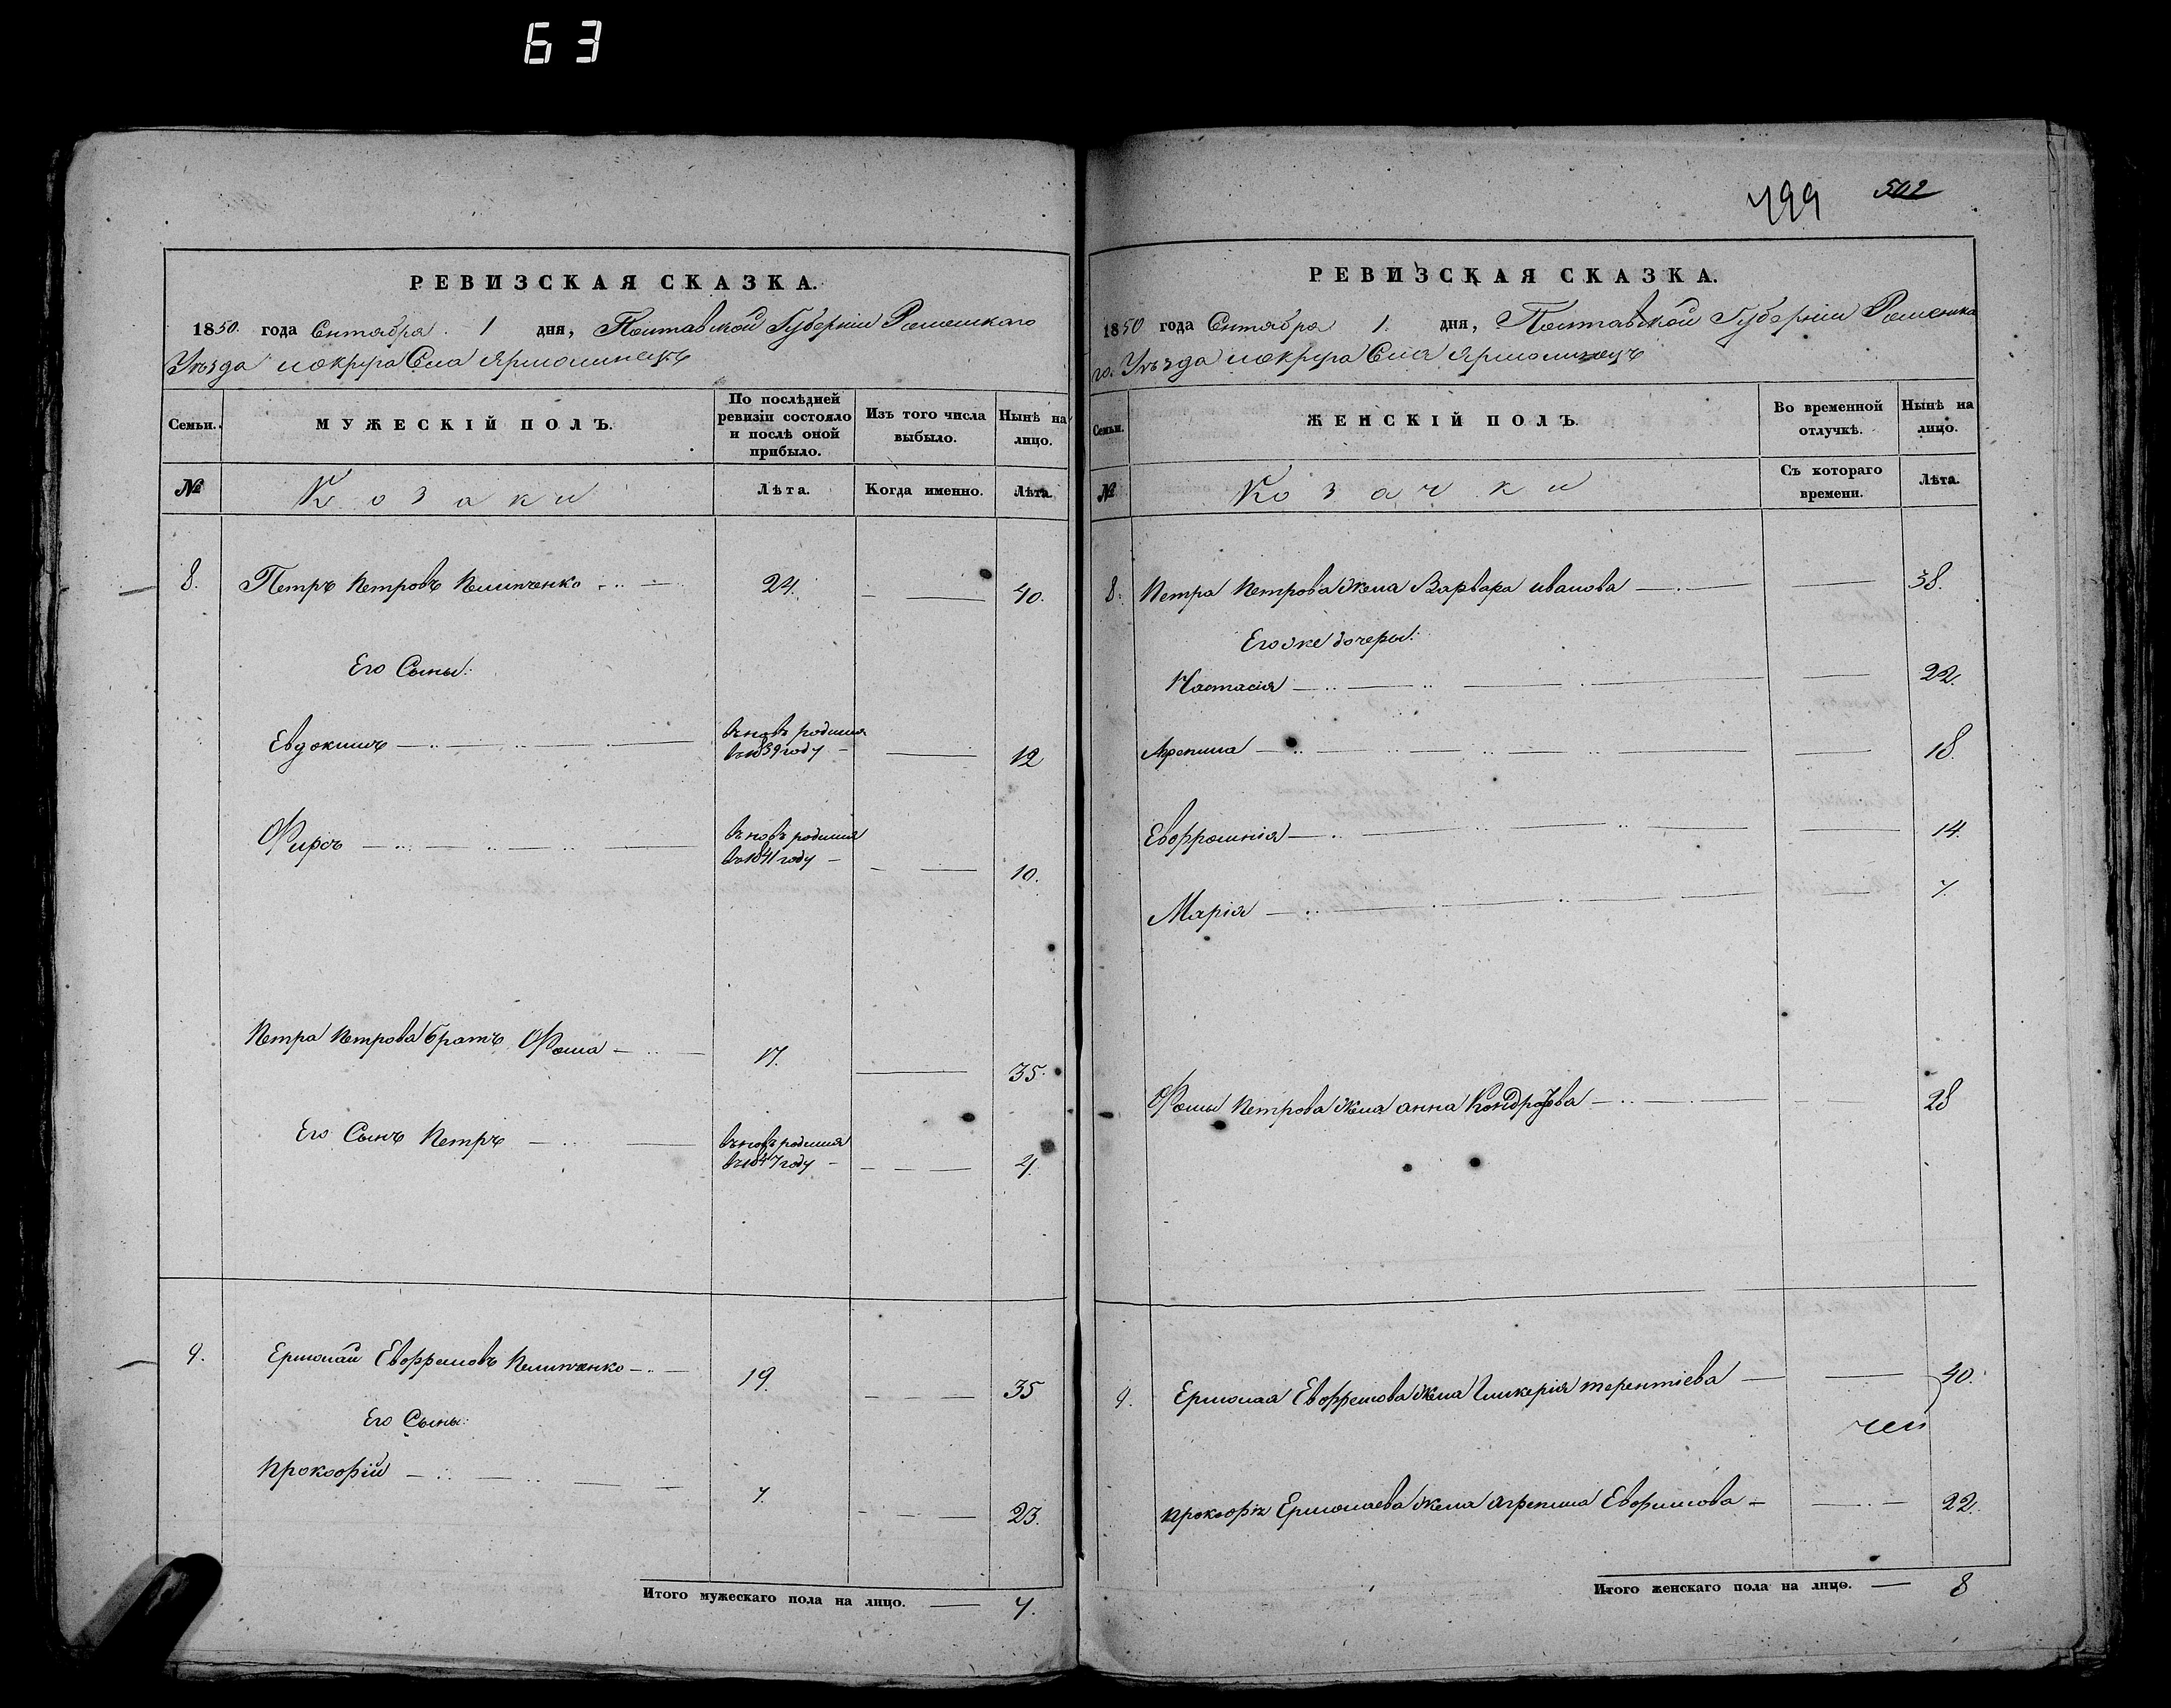 63
499 502
РЕВИЗСКАЯ СКАЗКА.
1850. года Сентября 1 дня, Полтавской Губерніи Роменскаго
Уѣзда и округа Села Ярмолинецъ
Семьи.
МУЖЕСКІЙ ПОЛЪ.
По послѣдней ревизіи состояло и послѣ оной прибыло.
Изъ того числа выбыло.
Нынѣ на лицо.
№
Козаки
Лѣта.
Когда именно.
Лѣта.
8. Петръ Петровъ 24. 40.
Его Сыны:
Евдокимъ вновь родился въ 1839 году 12
Фирсъ вновь родился въ 1841 году 10.
Петра Петрова братъ Фома 17. 35.
Его Сынъ Петръ вновь родился въ 1847 году 4.
9. Ермолай Евфремовъ 19. 35
Его Сыны:
Прокофій 7. 23.
Итого мужескаго пола на лицо. 7.
РЕВИЗСКАЯ СКАЗКА.
1850 года Сентября 1. дня, Полтавской Губерніи Роменска
го. Уѣзда и округа Села Ярмолинецъ
Семьи.
ЖЕНСКІЙ ПОЛЪ.
Во временной отлучкѣ.
Нынѣ на лицо.
№
Козачки
Съ котораго времени.
Лѣта.
8. Петра Петрова жена Варвара иванова 38.
Его же дочеры:
Настасія 22.
Агрепина 18.
Евфросинія 14.
Марія 7.
Фомы Петрова жена анна 28
9. Ермолая Евфремова жена Гликерія терентіева 40.
Прокофія Ермолаева жена агрепина Евфимова 22.
Итого женскаго пола на лицо. 8